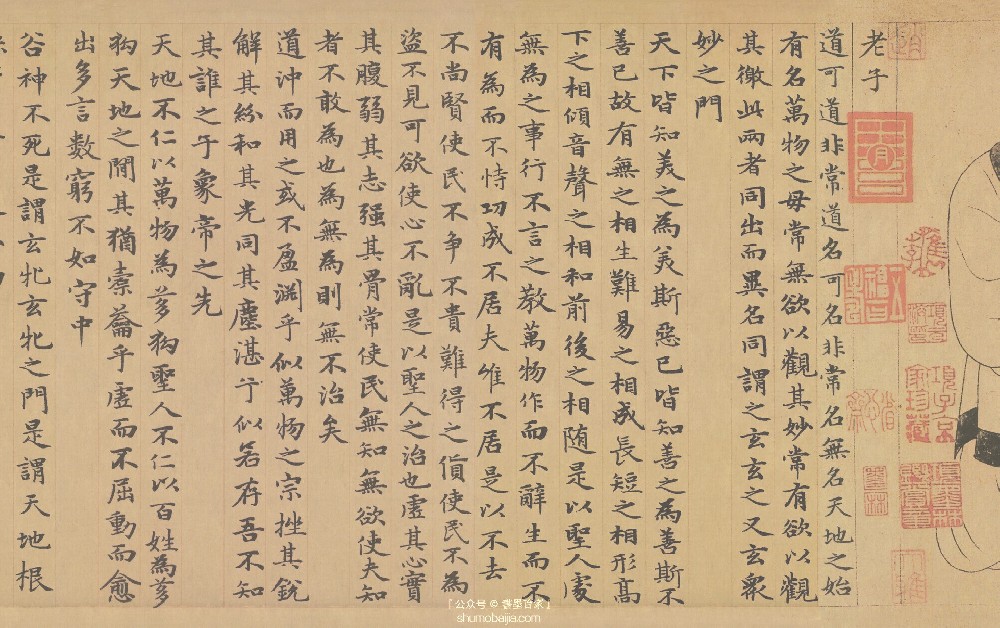 老子
道可道非常道名可名非常名無名天地之始
有名萬物之母常無欲以觀其妙常有欲以觀
其徼此兩者同出而異名同謂之玄玄之又玄衆
妙之門
天下皆知美之為美斯惡已皆知善之為善斯不
善已故有無之相生難易之相成長短之相形高
下之相傾音聲之相和前後之相随是以聖人處
無為之事行不言之教萬物作而不辭生而不
有為而不恃功成不居夫惟不居是以不去
不尚賢使民不争不貴難得之貨使民不為
盗不見可欲使心不亂是以聖人之治也虛其心實
其腹弱其志强其骨常使民無知無欲使夫知
者不敢為也為無為則無不治矣
道沖而用之或不盈淵乎似萬物之宗挫其銳
解其紛和其光同其塵湛乎似若存吾不知
其誰之子象帝之先
天地不仁以萬物為芻狗聖人不仁以百姓為芻
狗天地之間其猶橐籥乎虛而不屈動而愈
出多言數窮不如守中
谷神不死是謂玄牝玄牝之門是謂天地根
「公众号 © 書墨百家」
shumobaijia.com